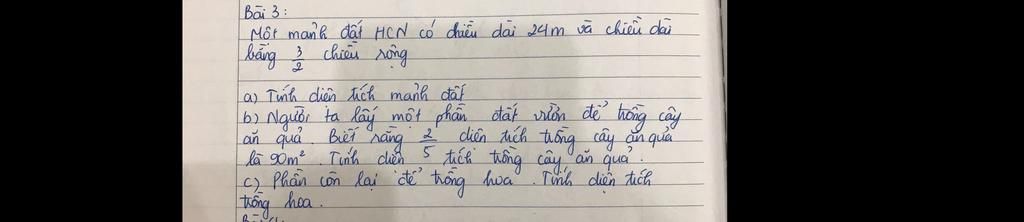 Bài 3:
Một mảnh đất HCN có chiều dài 24m và chiều dài
bằng 3/2 chiều rộng
a) Tính diện tích mảnh đất
b) Người ta lấy một phần đất vườn để trồng cây
ăn quả. Biết rằng 2/5 diện tích trồng cây ăn quả
là 90m². Tính diện tích trồng cây ăn quả.
c) Phần còn lại để trồng hoa. Tính diện tích
trồng hoa.